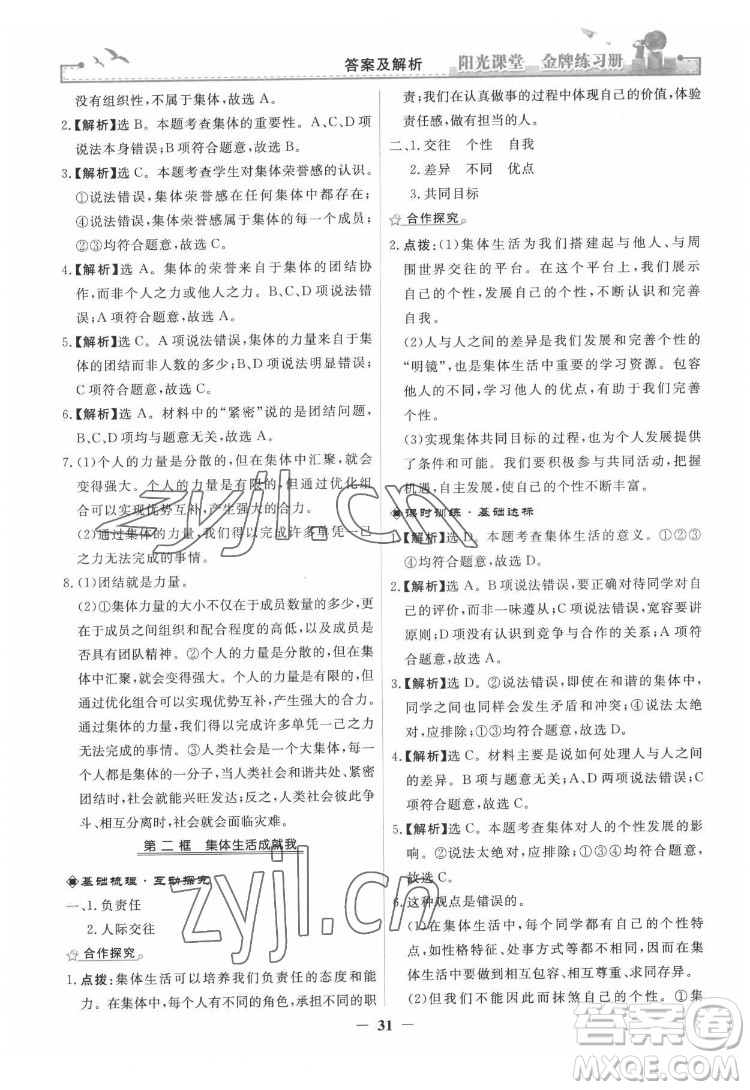 答案及解析
阳光课堂 金牌练习册
没有组织性，不属于集体，故选 A。
2.【解析】选 B。本题考查集体的重要性。A、C、D 项
说法本身错误；B 项符合题意，故选 B。
3.【解析】选 C。本题考查学生对集体荣誉感的认识。
①说法错误，集体荣誉感在任何集体中都存在；
④说法错误，集体荣誉感属于集体的每一个成员；
②③均符合题意，故选 C。
4.【解析】选 A。集体的荣誉来自于集体的团结协
作，而非个人之力或他人之力。B、C、D 项均与题
意不符；A 项符合题意，故选 A。
5.【解析】选 C。A 项说法错误，集体的力量来自于集
体的团结而非人数的多少；B、D 项说法明显错误；
C 项符合题意，故选 C。
6.【解析】选 A。材料中的“紧密”说的是团结问题，
B、C、D 项均与题意无关，故选 A。
7.(1)个人的力量是分散的，但在集体中汇聚，就会
变得强大。个人的力量是有限的，但通过优化组
合可以实现优势互补，产生强大的合力。
(2)通过集体的力量，可以完成许多单凭一己
之力无法完成的事情。
8.(1)团结就是力量。
(2)①集体力量的大小不仅在于成员数量的多少，更
在于成员之间组织和配合程度的高低，以及成员是
否具有团队精神。②个人的力量是分散的，但在集
体中汇聚，就会变得强大；个人的力量是有限的，但
通过优化组合可以实现优势互补，产生强大的合
力。人们借助集体的力量，可以完成许多单凭一己之力
无法完成的事情。③人类社会是一个大集体，每
一个人都是集体的一分子，人类社会和谐共处、紧密
团结，社会就能兴旺发达；人类社会如果彼此争
斗、相互分离，社会就会面临灾难。
第二框 集体生活成就我
基础梳理·互动探究
一、1.负责任
2.人际交往
合作探究
1.点拨：集体生活可以培养我们负责任的态度和能
力。在集体中，每个人有不同的角色，承担不同的职
责；我们在认真做事的过程中体现自己的价值，体验
责任感，做有担当的人。
二、1.交往 个性 自我
2.差异 不同 优点
3.共同目标
合作探究
2.点拨：(1)集体生活为我们搭建起与他人、与周
围世界交往的平台。在这个平台上，我们展示、
发展自己的个性，不断认识和完善
自我。
(2)人与人之间的差异是我们发展和完善个性的
“明镜”，是集体生活中重要的学习资源。包容
他人的不同，学习他人的优点，有助于我们完善
个性。
(3)实现集体共同目标的过程，也为个性发展提供
了条件和可能。我们要积极参与共同活动，把握
机遇，自主发展，使自己的个性不断丰富。
课时训练·基础达标
1.【解析】选 D。本题考查集体生活的意义。①②③④
均正确，故选 D。
2.【解析】选 A。B 项说法错误，要正确对待同学对自
己的评价，而非一味遵从；C 项说法错误，宽容要讲
原则；D 项没有认识到竞争与合作的关系；A 项符
合题意，故选 A。
3.【解析】选 D。②说法错误，即使在和谐的集体中，
同学之间也同样会发生矛盾和冲突；④说法太绝
对，应排除；①③符合题意，故选 D。
4.【解析】选 C。材料主要是说如何处理人与人之间
的差异。A、B、D 两项说法错误；C 项符合题意，
故选 C。
5.【解析】选 C。本题考查集体对人的个性发展的影
响。①说法太绝对，应排除；②③④均符合题意，
故选 C。
6.这种观点是错误的。
(1)在集体生活中，每个同学都有各自的个性特
点，如性格特征、处事方式等都会有所不同。在
集体生活中要做到相互包容、相互尊重，
(2)但是，我们不能因此而抹煞自己的个性。①集
31